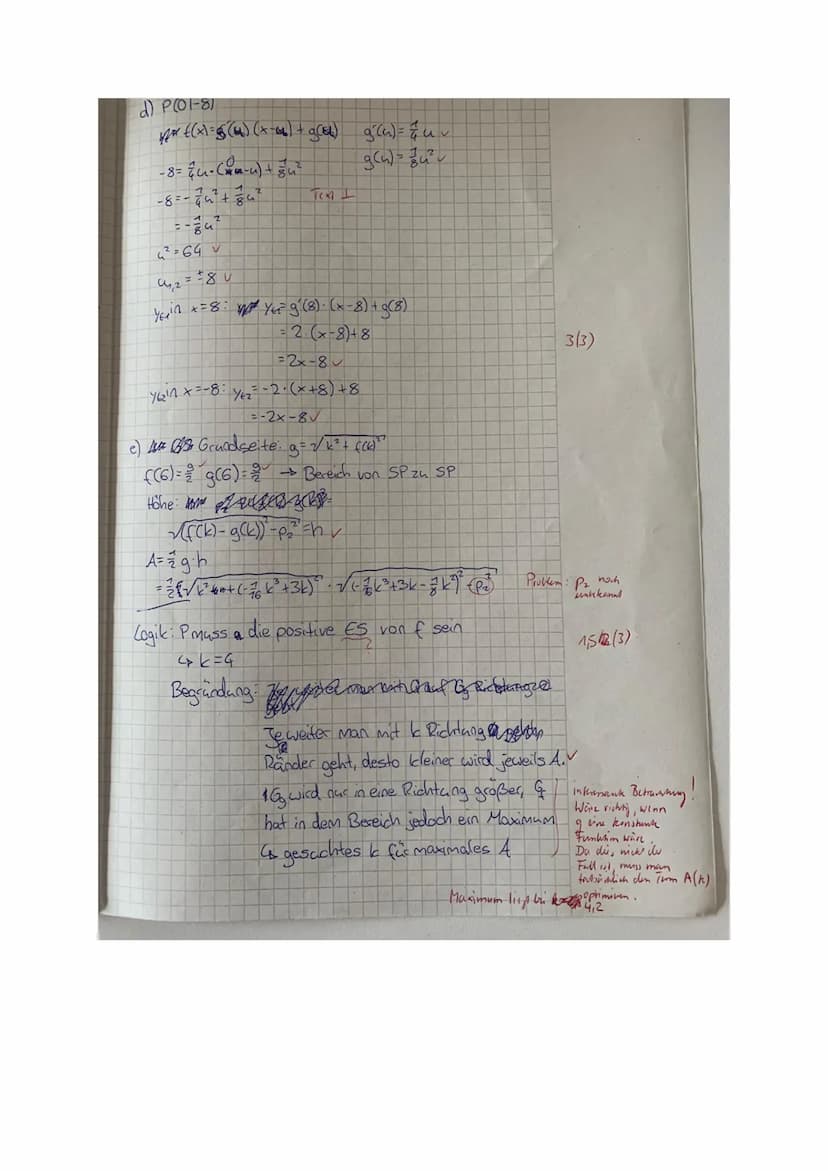 d) P(0|-8)
f(x)=g'(u)(x-u)+g(u) g'(u)=¼u ✓
g(u)=⅛u² ✓
-8=¼u·(0-u)+⅛u²
-8=-¼u²+⅛u²
=-⅛u²
u²=64 ✓
u₁,₂=±8 ✓
yt1 in x=8: yt1=g'(8)·(x-8)+g(8)
=2·(x-8)+8
3(3)
=2x-8 ✓
yt2 in x=-8: yt2=-2·(x+8)+8
=-2x-8 ✓
e) Grundseite: g=√(k²+f(k)²)
f(6)=9/2 ✓ g(6)=9/2 ✓ → Bereich von SP zu SP
Höhe:
√((f(k)-g(k))²-p₂²)=h ✓
A=½g·h
=½·√(k²+(-1/16k³+3k)²)·√((-1/16k³+3k-⅛k²)²-p₂²) Problem: p₂ noch
unbekannt
Logik: P muss die positive ES von f sein
?
1,5(3)
↳ k=4
Begründung:
Je weiter man mit k Richtung
Ränder geht, desto kleiner wird jeweils A. ✓
Gg wird nur in eine Richtung größer, Gf
hat in dem Bereich jedoch ein Maximum
↳ gesuchtes k für maximales A
interessante Betrachtung!
Wäre richtig, wenn
g eine konstante
Funktion wäre.
Da dies nicht der
Fall ist, muss man
tatsächlich den Term A(k)
optimieren.
Maximum liegt bei 4,2